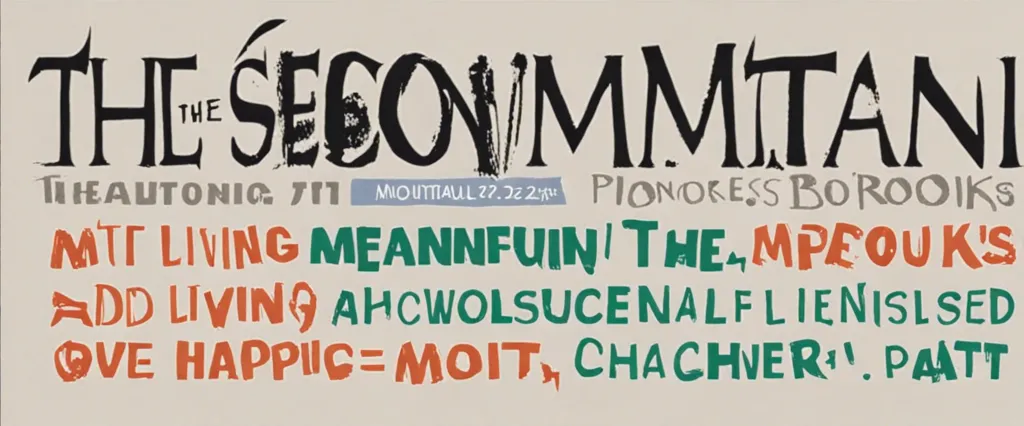 THE THE SECOVMMTANI
THEAUTONIC. 7IT MIOUTITAUL 27.J22 PIONORESS BO'ROOIKS
MTT LIVING MEANNFUIN! THE, MPEOUK'S
ADD LIVING AHCWOLSUCENALFLIENISLSED
OVE HAPPIIG= MOIT, CHACHVER!. PAATT